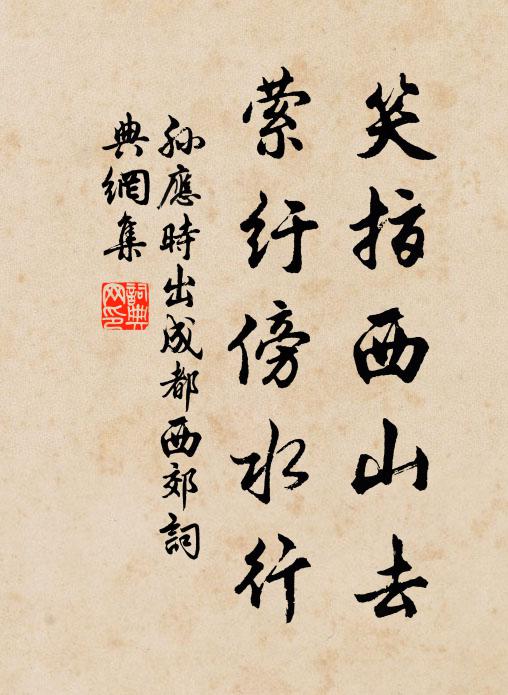 笑指西山去
萦纡傍水行
孙應時出成都西郊詞
典網集
詞典
网印